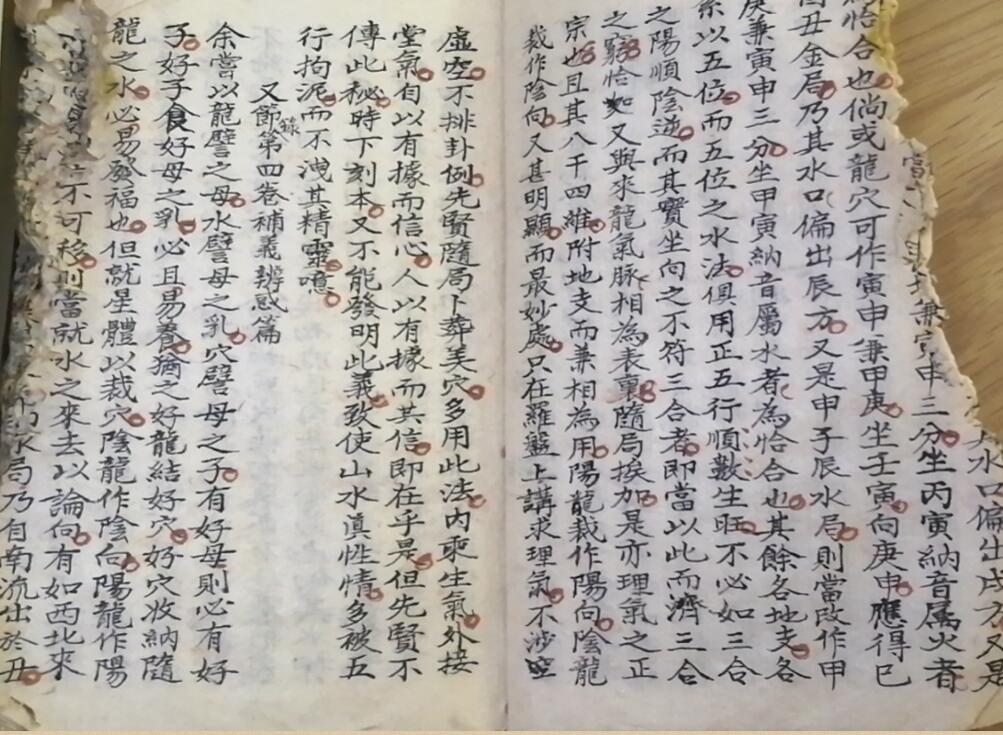 水口偏出戌方又是
兼寅申三分坐丙寅納音屬火者
恰合也倘或龍穴可作寅申兼甲庚坐壬寅向庚申應得巳
酉丑金局乃其水口偏出辰方又是申子辰水局則當改作甲
庚兼寅申三分坐甲寅納音屬水者為恰合也其餘各地支各
系以五位而五位之水法俱用正五行順數生旺不必如三合
之陽順陰逆而其實坐向之不符三合者即當以此而濟三合
之窮恰如又與來龍氣脉相為表裏隨局挨加是亦理氣之正
宗也且其八干四維附地支而兼相為用陽龍裁作陽向陰龍
裁作陰向又甚明顯而最妙處只在羅盤上講求理氣不涉空
虛空不排卦例先賢隨局卜葬美穴多用此法內乘生氣外接
堂氣自以有據而信心人以有據而其信即在乎是但先賢不
傳此秘時下刻本又不能發明此義致使山水真性情多被五
行拘泥而不洩其精靈噫
又節錄第四卷補義辨惑篇
余嘗以龍譬之母水譬母之乳穴譬母之子有好母則必有好
子好子食好母之乳必且易養猶之好龍結好穴好穴收納隨
龍之水必易發福也但就星體以裁穴陰龍作陰向陽龍作陽
不可移則當就水之來去以論向有如西北來
水局乃自南流出於丑